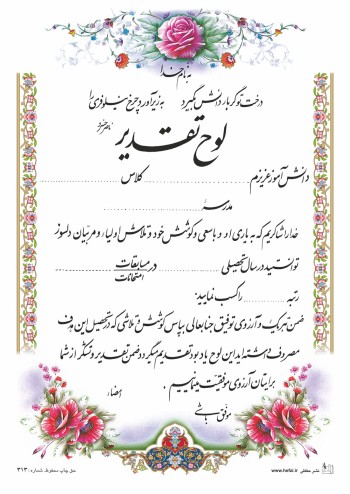 به نام خدا
درخت تو گر بار دانش بگیرد به زیر آوری چرخ نیلوفری را
ناصرخسرو
لوح تقدیر
دانش آموز عزیزم کلاس
مدرسه
خدا را شاکریم که به یاری او و با سعی و کوشش خود و تلاش اولیاء و مربیان دلسوز
توانستید در سال تحصیلی در مسابقات
امتحانات
رتبه را کسب نمایید.
ضمن تبریک و آرزوی توفیق جنابعالی بپاس کوشش و تلاشی که در تحصیل این هدف
مصروف داشته اید این لوح یادبود تقدیم میگردد و ضمن تقدیر و تشکر از شما
برایتان آرزوی موفقیت مینمائیم.
امضاء
موفق باشی
حق چاپ محفوظ. شماره: ۳۱۳
www.hefzi.ir نشر حفظی